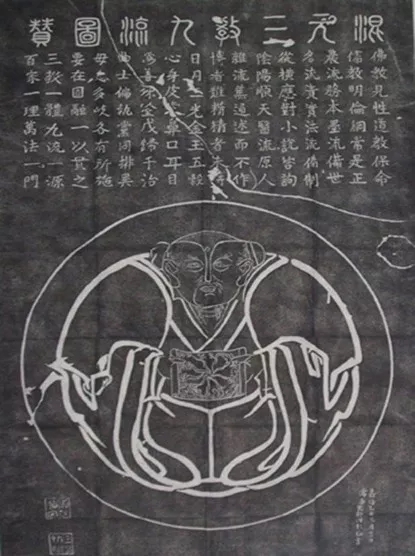 混元三教九流圖贊
佛教見性道教保命
儒教明倫綱常是正
農流務本墨流備世
名流責實法流輔制
從橫應對小說咨詢
陰陽順天醫流原人
雜流兼通述而不作
博者難精精者未博
日月三光金玉五穀
心身皮膚鼻口耳目
爲善殊塗咸歸于治
曲士偏執黨同排異
毋患多歧各有所施
要在圓融一以貫之
三教一體九流一源
百家一理萬法一門